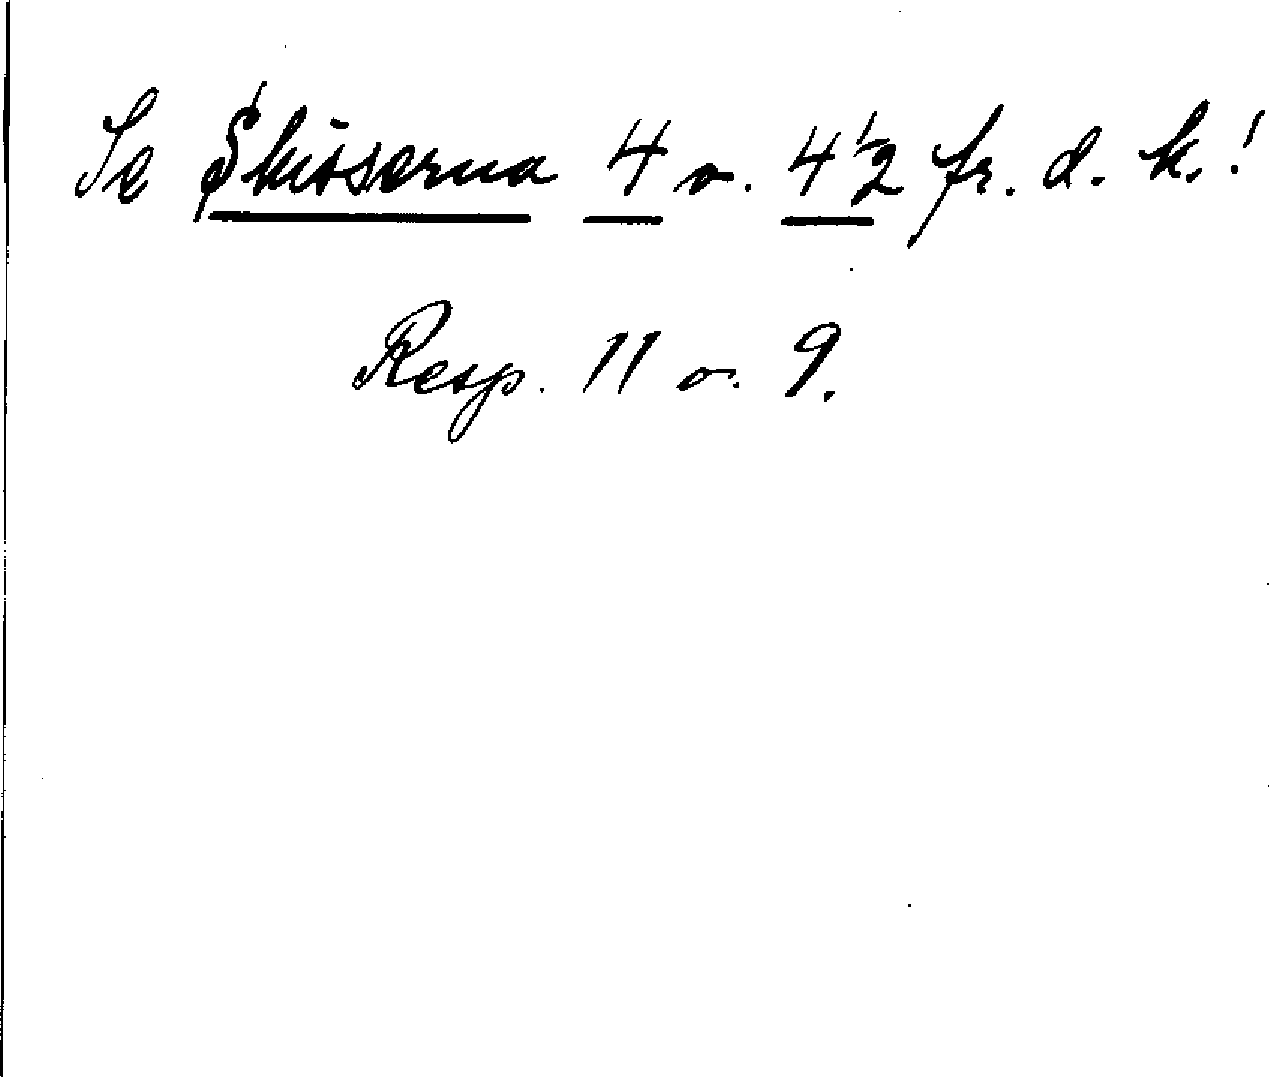 Se Skisserna 4 o. 4 1/2 fr. d. k.!
Resp. 11 o. 9.